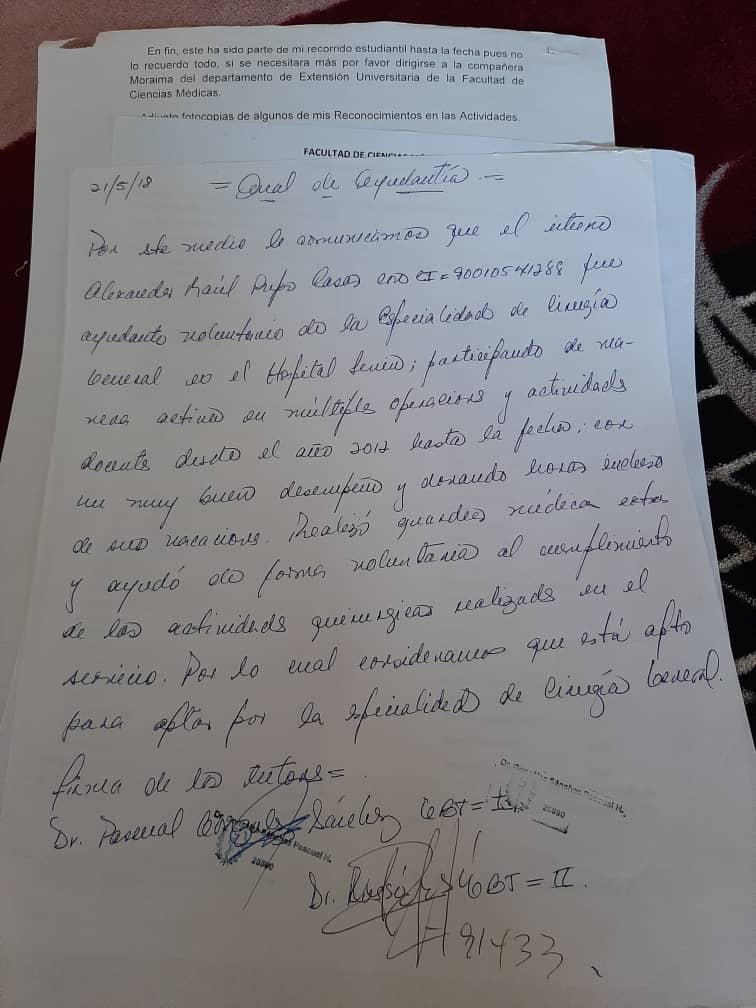 En fin, este ha sido parte de mi recorrido estudiantil hasta la fecha pues no
lo recuerdo todo, si se necesitara más por favor dirigirse a la compañera
Moraima del departamento de Extensión Universitaria de la Facultad de
Ciencias Médicas.
fotocopias de algunos de mis Reconocimientos en las Actividades.
FACULTAD DE
21/5/18 = de Ayudantía. =
Por este medio le comunicamos que el interno
Alexander Raúl Pupo Casas CI = 90010541288 fue
ayudante voluntario de la Especialidad de Cirugía
General en el Hospital ; participando de ma-
nera activa en múltiples operaciones y actividads
docente desde el año 2012 hasta la fecha; con
un muy buen desempeño y donando horas incluso
de sus vacacions. Realizó guardias médica extra
y ayudó de forma voluntaria al cumplimiento
de las actividads quirurgicas realizads en el
servicio. Por lo cual consideramos que está apto
para optar por la especialidad de Cirugía General.
firma de los tutors =
Dr. Pascual González Sánchez 6BT = II
Dr. González Sánchez Pascual H.
20890
Pascual H.
20890
Dr. 6BT = II.
91433